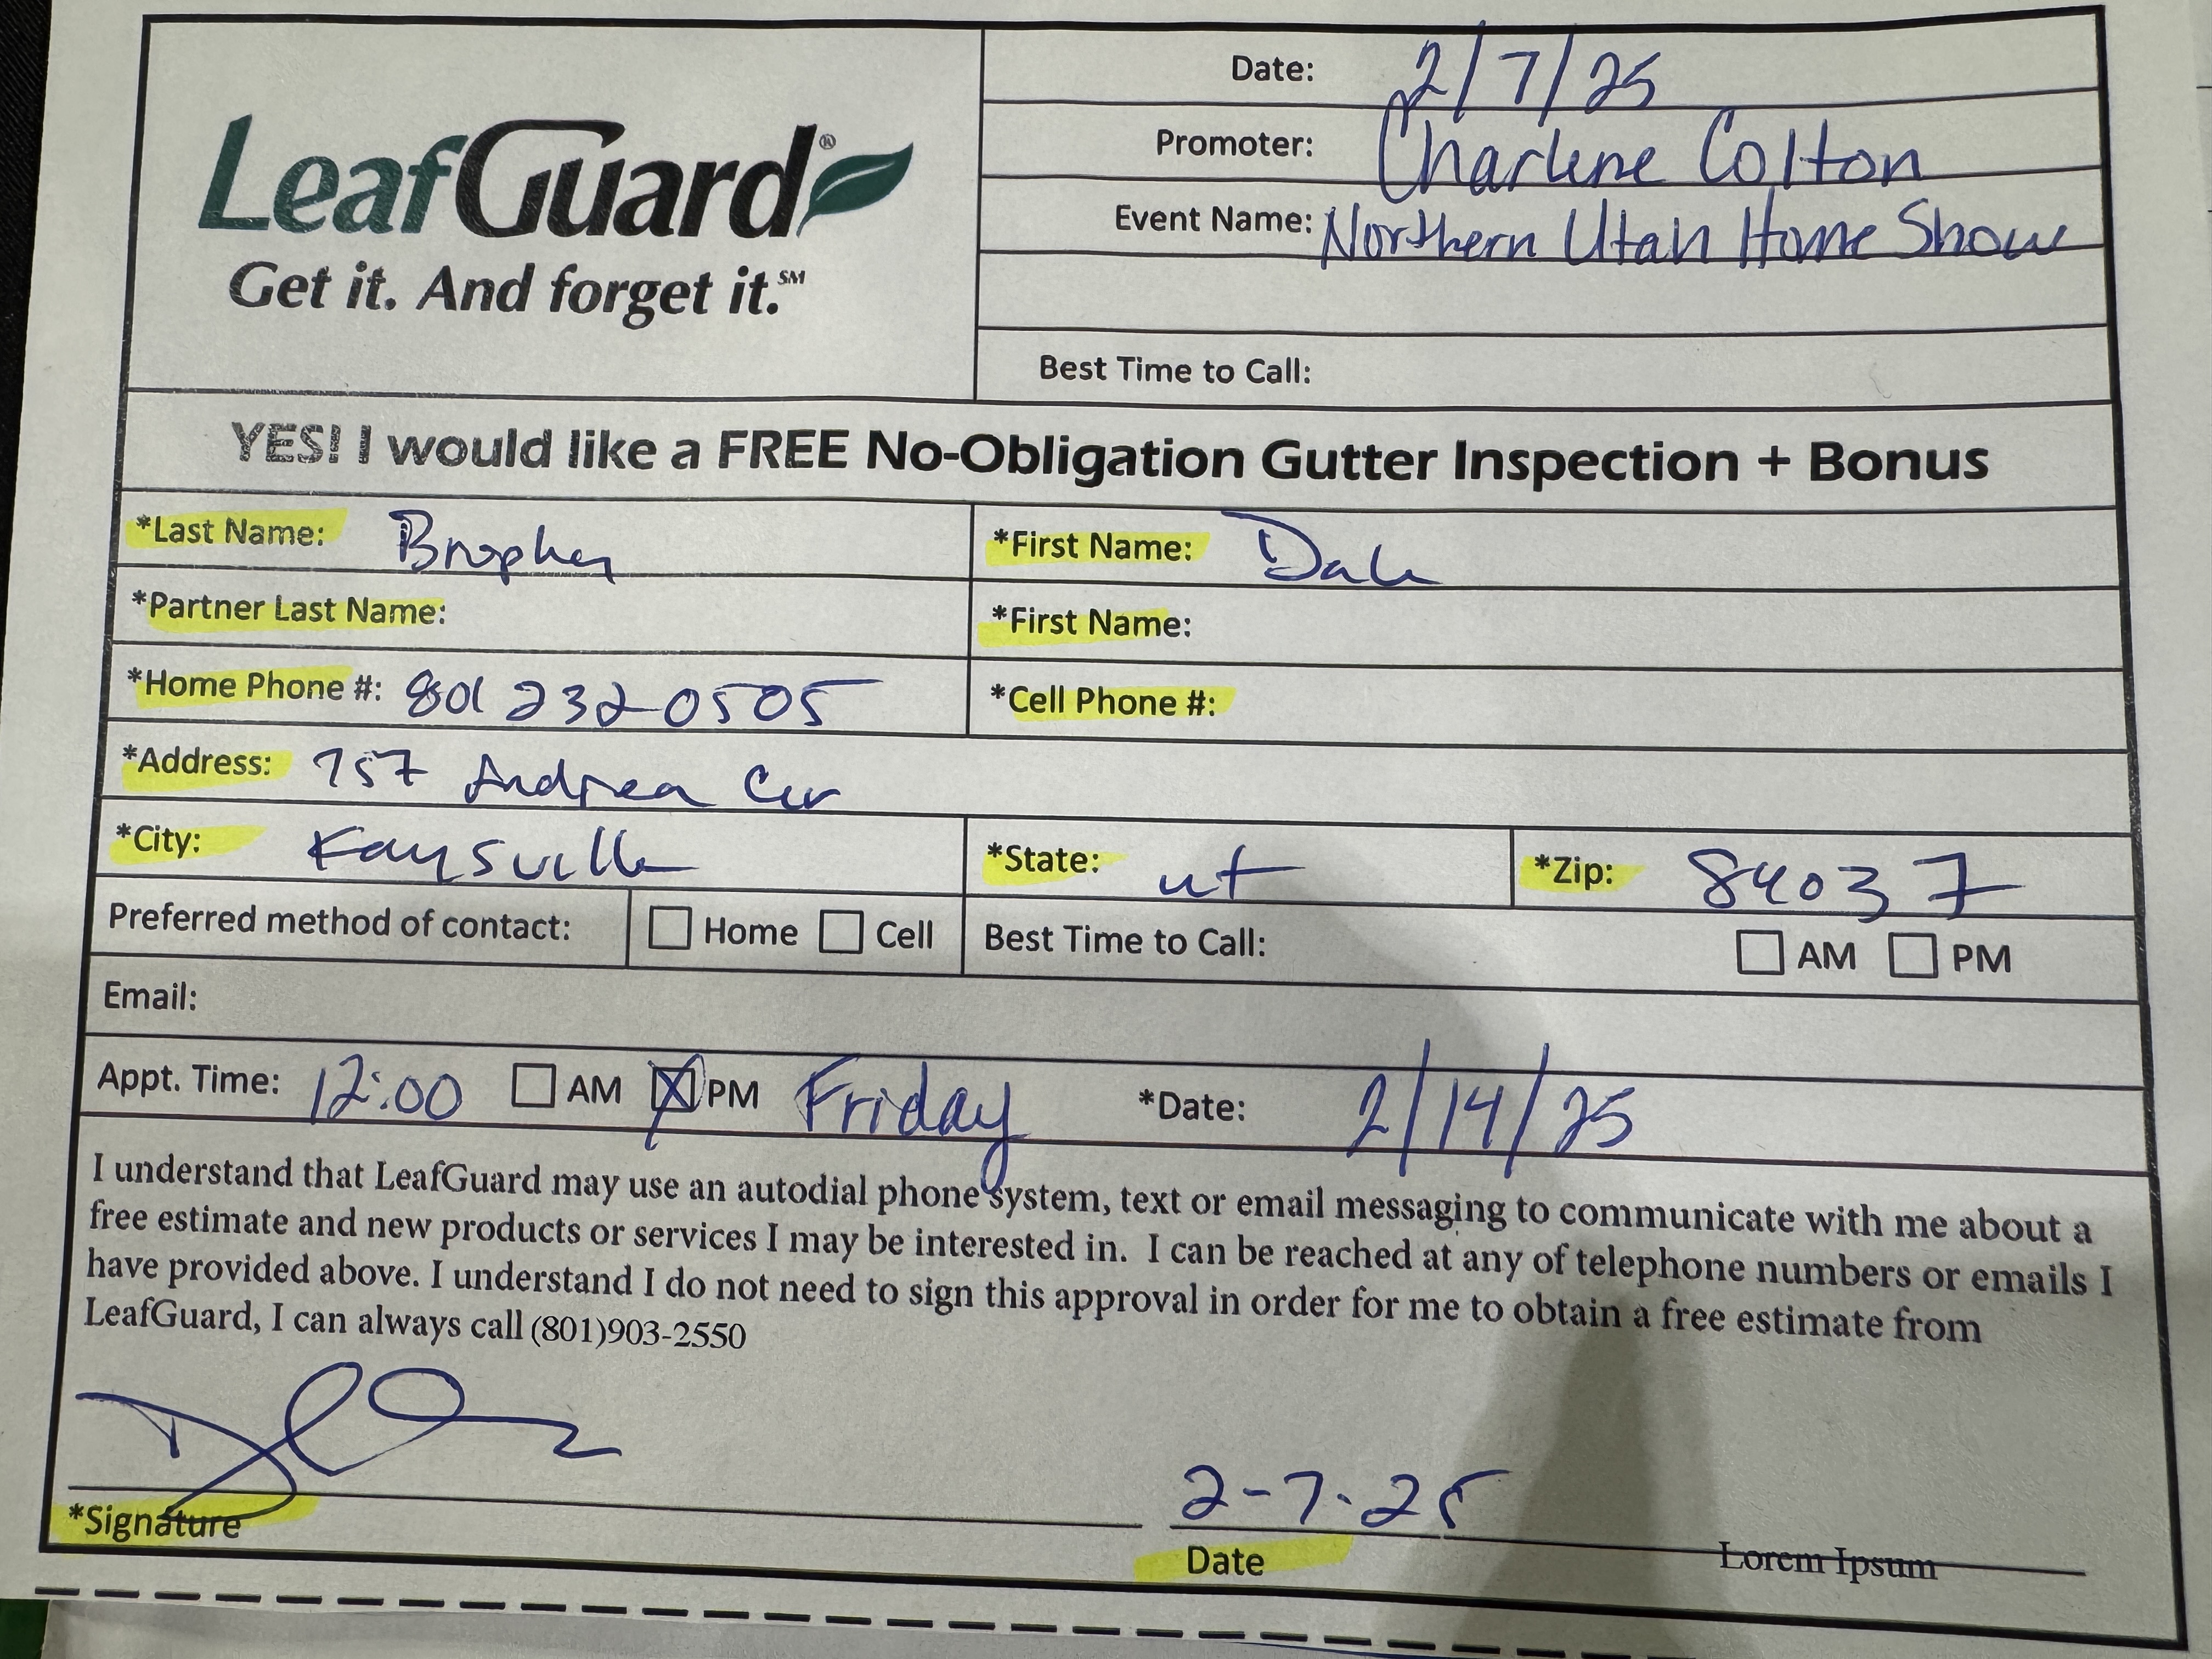 LeafGuard®
Get it. And forget it.℠
Date: 2/7/25
Promoter: Charlene Colton
Event Name: Northern Utah Home Show
Best Time to Call:
YES! I would like a FREE No-Obligation Gutter Inspection + Bonus
*Last Name: Brophy *First Name: Dale
*Partner Last Name: *First Name:
*Home Phone #: 801 232-0505 *Cell Phone #:
*Address: 757 Andrea Cir
*City: Kaysville *State: ut *Zip: 84037
Preferred method of contact: Home Cell Best Time to Call: AM PM
Email:
Appt. Time: 12:00 AM PM Friday *Date: 2/14/25
I understand that LeafGuard may use an autodial phone system, text or email messaging to communicate with me about a
free estimate and new products or services I may be interested in. I can be reached at any of telephone numbers or emails I
have provided above. I understand I do not need to sign this approval in order for me to obtain a free estimate from
LeafGuard, I can always call (801)903-2550
2-7-25
*Signature Date Lorem Ipsum